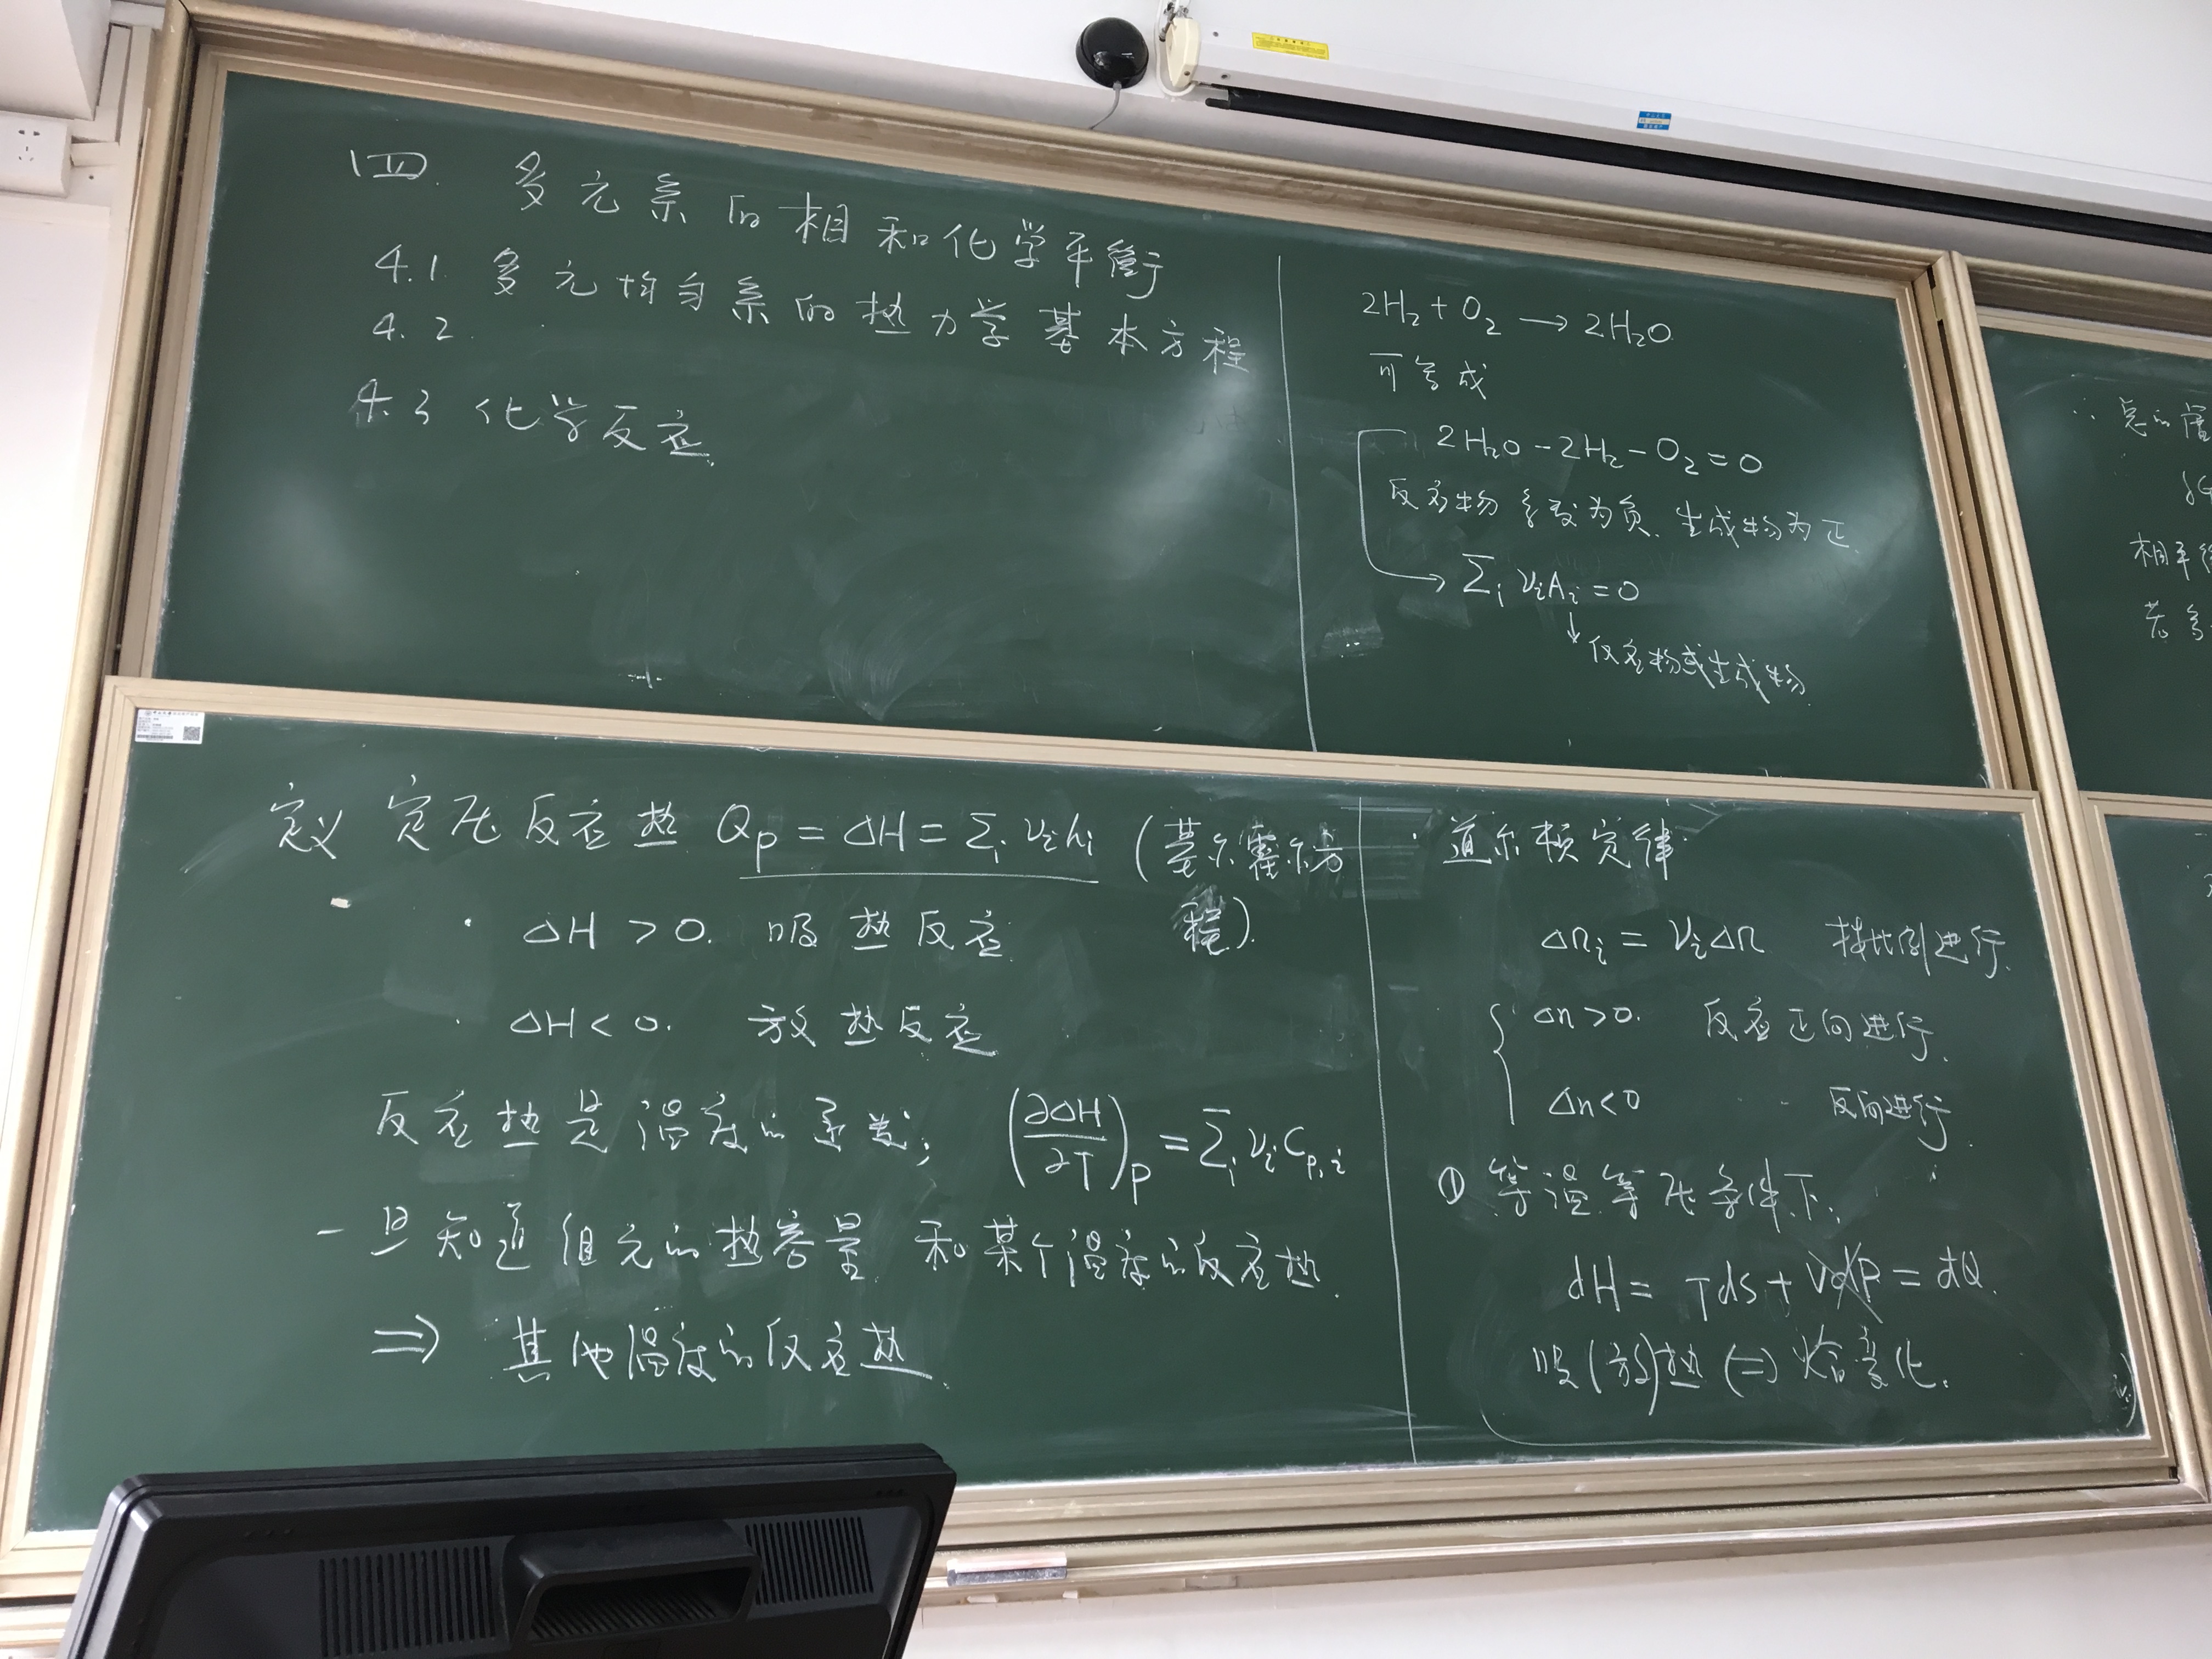 四. 多元系的相和化学平衡
4.1 多元均匀系的热力学基本方程
4.2
4.3 化学反应.
2H₂ + O₂ → 2H₂O
可写成
2H₂O - 2H₂ - O₂ = 0
反应物系数为负. 生成物为正.
→ Σᵢ νᵢAᵢ = 0
↓
反应物或生成物.
定义 定压反应热 Qp = ΔH = Σᵢ νᵢhᵢ (基尔霍尔方
程).
· ΔH > 0. 吸热反应
· ΔH < 0. 放热反应
反应热是温度的函数; (∂ΔH/∂T)p = Σᵢ νᵢCp,ᵢ
一旦知道组元的热容量 和某个温度的反应热.
⇒ 其他温度的反应热.
· 道尔顿定律
Δnᵢ = νᵢΔn 按比例进行.
Δn > 0. 反应正向进行.
Δn < 0 · · 反向进行.
① 等温等压条件下.
dH = Tds + Vdp = đQ.
吸(放)热 (=) 焓变化.
∴ 总的
相平
若